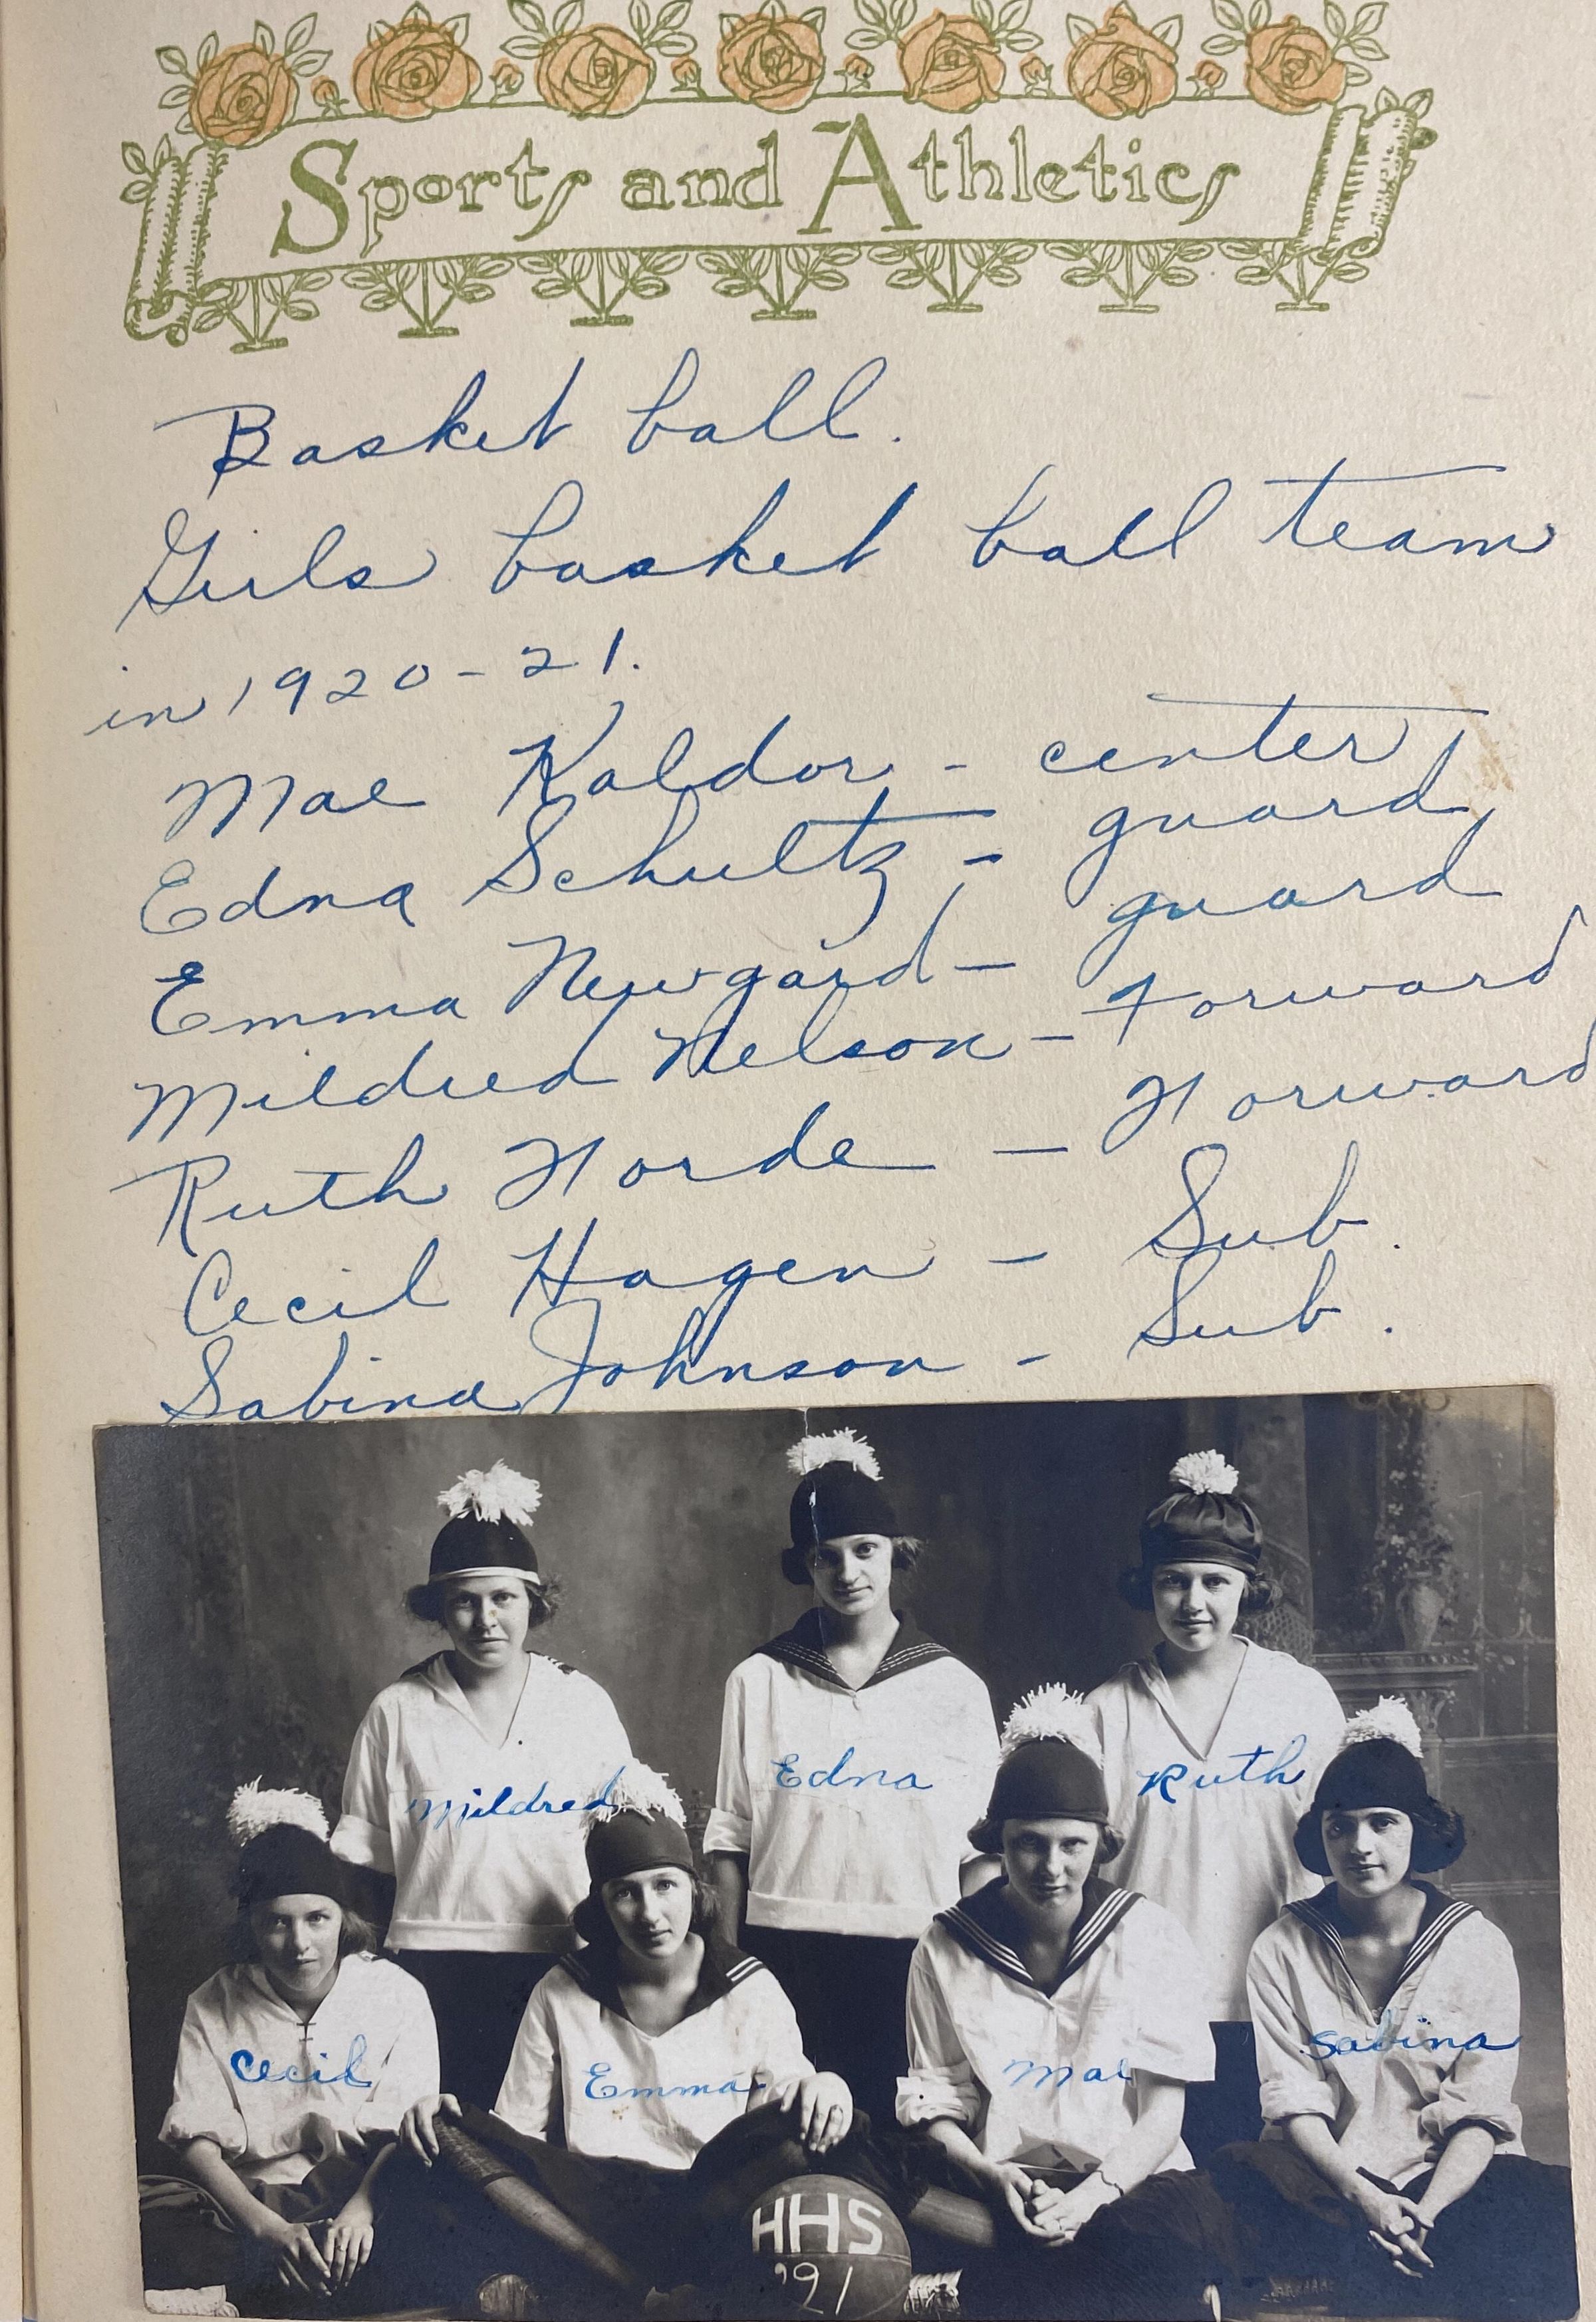 Sports and Athletics
Basket ball.
Girls basket ball team
in 1920-21.
Mae Kaldor - center
Edna Schultz - guard
Emma Newgard - guard
Mildred Nelson - Forward
Ruth Forde - Forward
Cecil Hagen - Sub.
Sabina Johnson - Sub.
Mildred
Edna
Ruth
Cecil
Emma
Mae
Sabina
HHS
'21